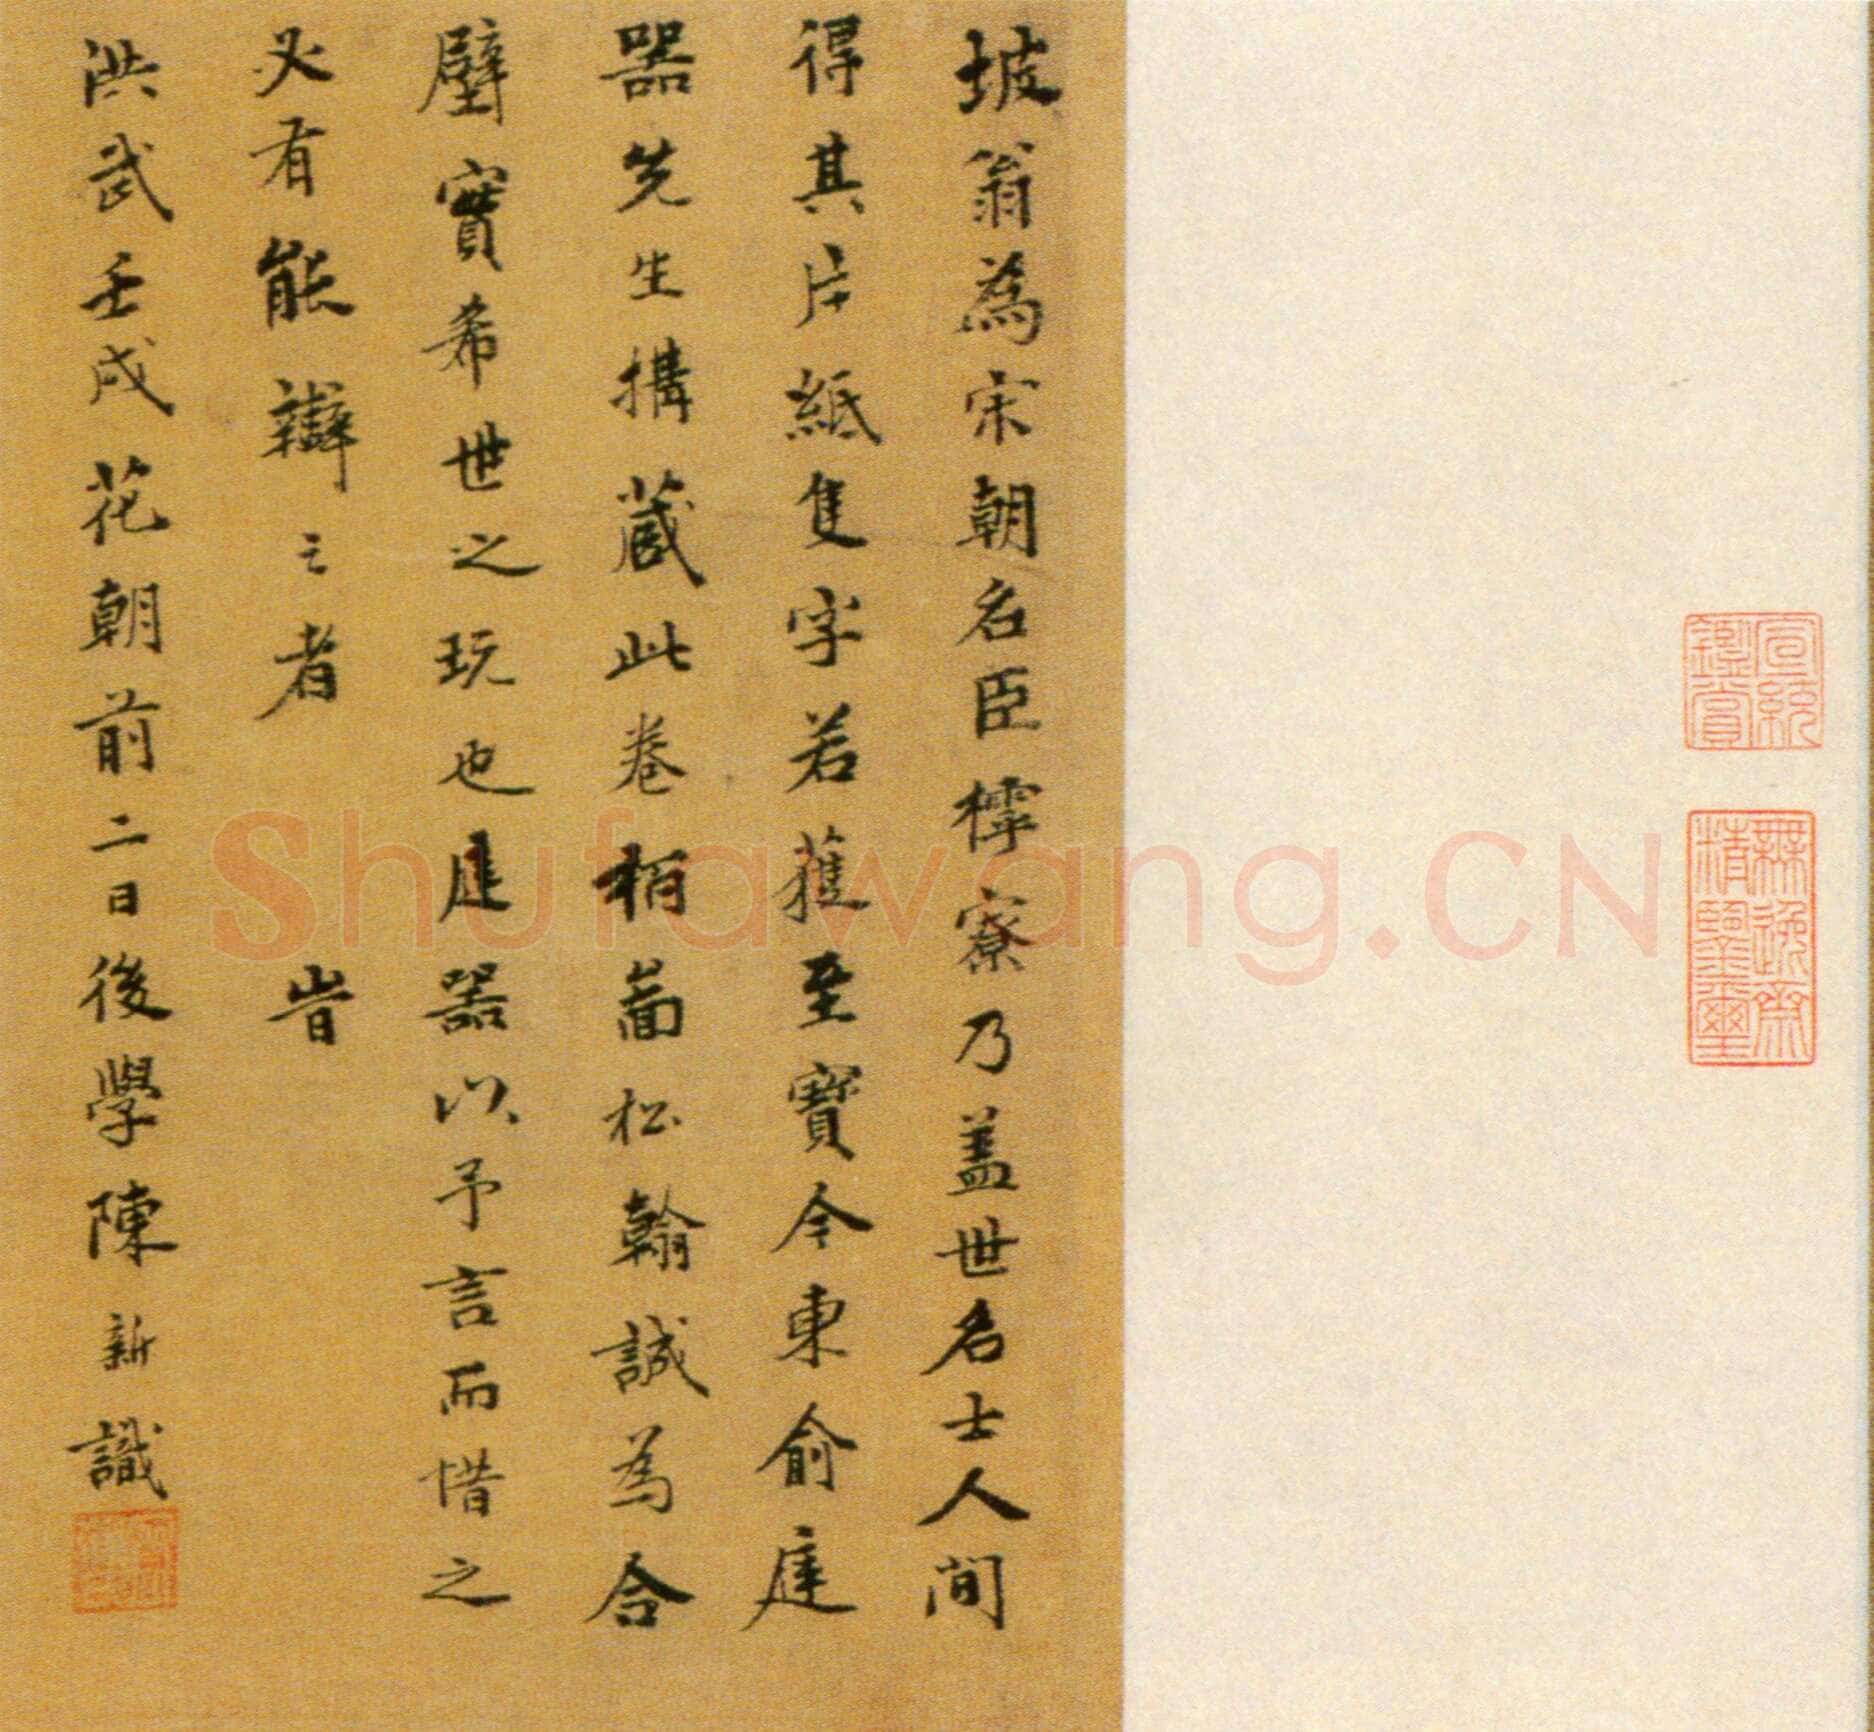 坡翁為宋朝名臣樗寮乃盖世名士人间
得其片紙隻字若獲至寶今東俞庭
器先生構蔵此卷栢啚松翰誠為合
璧寳希世之玩也庭器以予言而惜之
必有能辯之者 旹
洪武壬戌花朝前二日後學陳新識
宣統鑑賞
無逸齋精鑒璽
Shufawang.CN